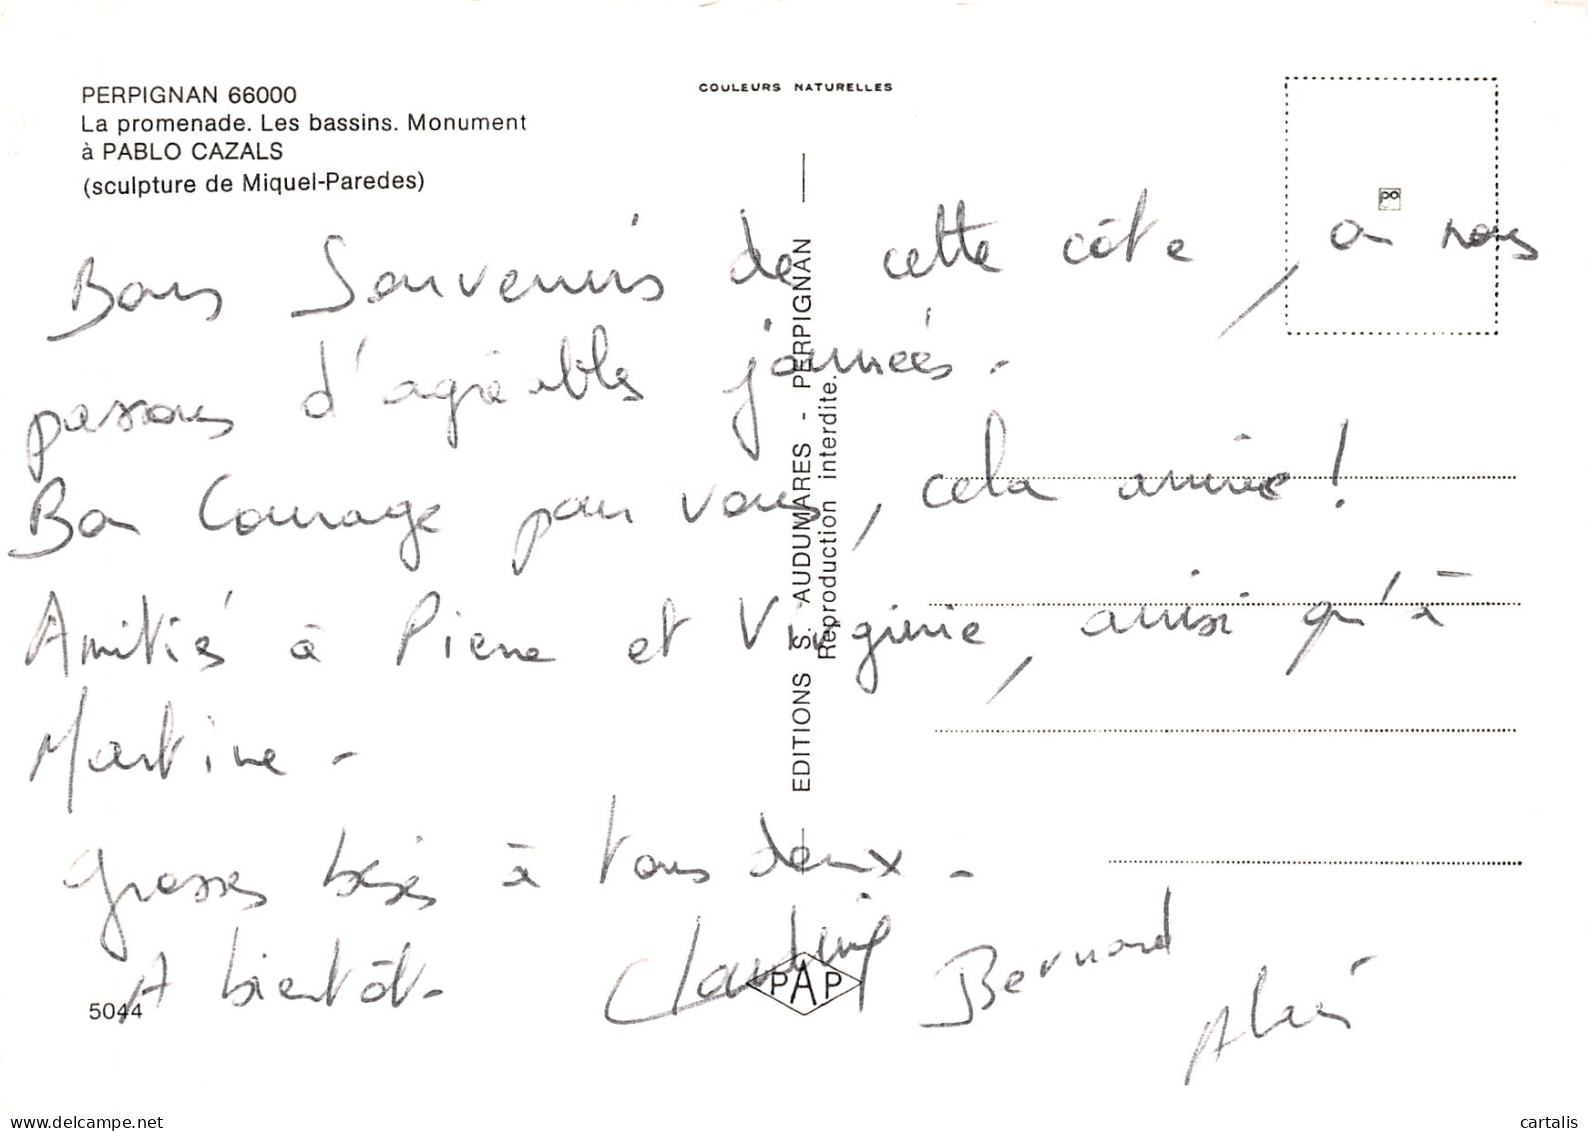 PERPIGNAN 66000
La promenade. Les bassins. Monument
à PABLO CAZALS
(sculpture de Miquel-Paredes)
COULEURS NATURELLES
po
Bons Souvenirs de cette côte, on nous
passons d'agréables journées.
Bon Courage pour vous, cela arrive !
Amitiés à Pierre et Virginie, ainsi qu'à
Martine -
grosses bises à tous deux -
A bientôt -
Claudine Bernard
Alain
EDITIONS S. AUDUMARES - PERPIGNAN
Reproduction interdite.
PAP
5044
www.delcampe.net
cartalis